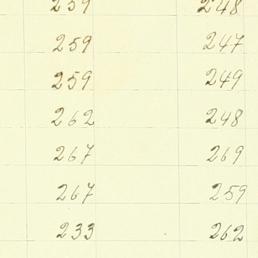 259 248
259 247
259 249
262 248
267 269
267 259
233 262